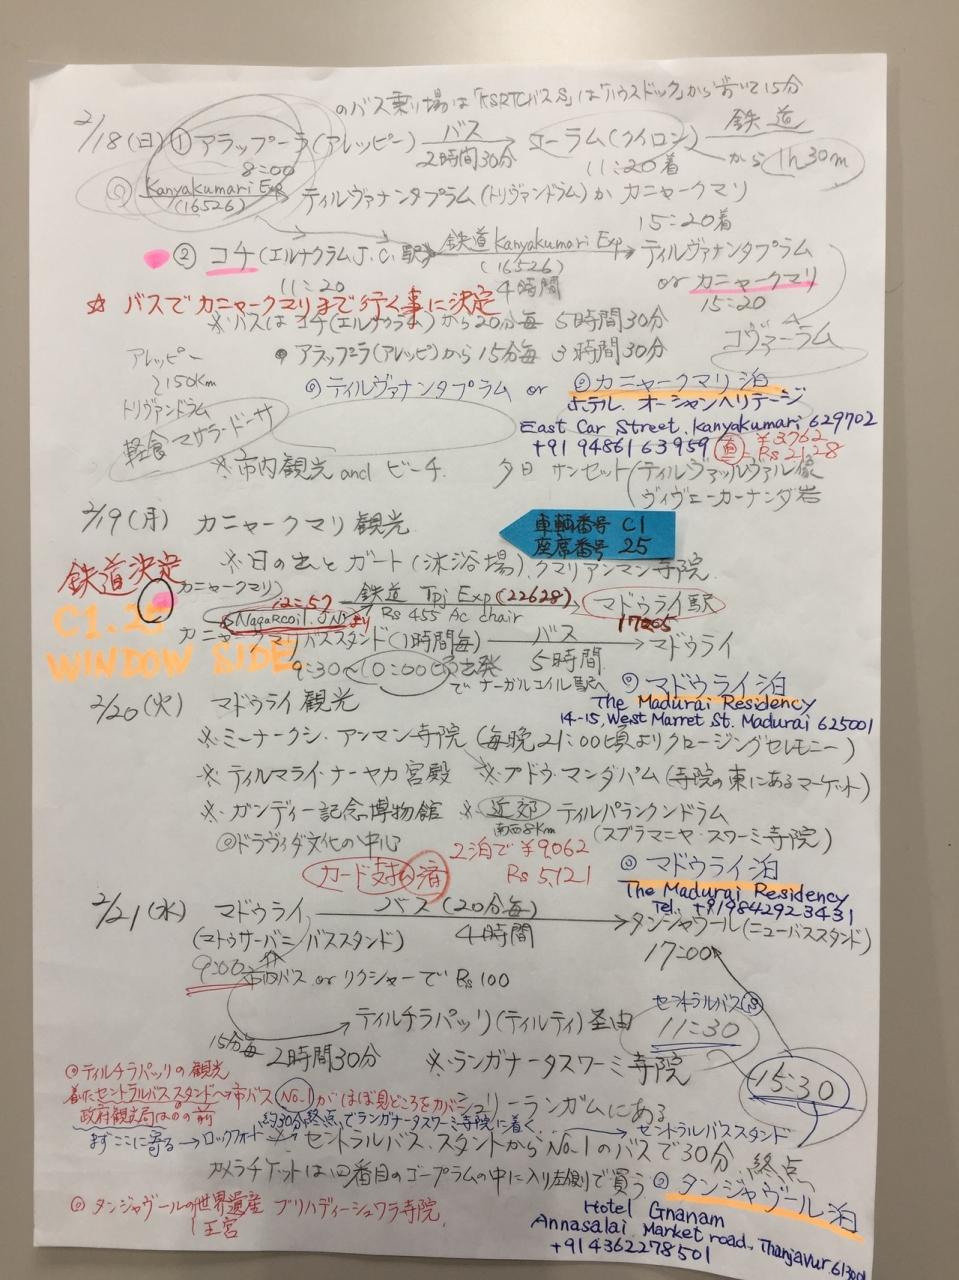 のバス乗り場は「KSRTCバスS」は「ハウスドック」から歩いて15分
2/18(日) ① アラップーラ(アレッピー) バス 2時間30分 コーラム(クイロン) 鉄道
8:00 11:20着 から 1h30m
Kanyakumari Exp (16526) ティルヴァナンタプラム(トリヴァンドラム)か カニャークマリ
15:20着
② コチ(エルナクラムJ.C.駅) 鉄道 Kanyakumari Exp (16526) 4時間 ティルヴァナンタプラム
11:20 or カニャークマリ
15:20
☆ バスでカニャークマリまで行く事に決定
※バスはコチ(エルナクラム)から20分毎 5時間30分
コヴァーラム
● アラップーラ(アレッピ)から15分毎 3時間30分
アレッピー
〜150Km
トリヴァンドラム
◎ティルヴァナンタプラム or ◎カニャークマリ泊
ホテル オーシャンヘリテージ
East Car Street, Kanyakumari 629702
+91 94861 63959 ¥3,762
Rs 2128
軽食 マサラ・ドーサ
※市内観光 and ビーチ. 夕日 サンセット(ティルヴァッルヴァル像
ヴィヴェーカーナンダ岩
2/19(月) カニャークマリ観光
車輌番号 C1
座席番号 25
※日の出とガート(沐浴場),クマリアンマン寺院
鉄道決定
カニャークマリ
C1.25
WINDOW SIDE
12:57 鉄道 Tpj Exp (22628) マドゥライ駅
Nagarcoil JNより Rs 455 Ac chair 17:05
カニャークマリバススタンド(1時間毎) バス 5時間 マドゥライ
9:30〜10:00頃出発
でナーガルコイル駅へ
◎マドゥライ泊
The Madurai Residency
14-15, West Marret St. Madurai 625001
2/20(火) マドゥライ観光
※ミーナークシ・アンマン寺院(毎晩21:00頃よりクロージングセレモニー)
※ティルマライ・ナーヤカ宮殿 ※プドゥ・マンダパム(寺院の東にあるマーケット)
※ガンディー記念博物館 ※近郊 ティルパランクンドラム
南西8Km (スブラマニヤ・スワーミ寺院)
◎ドラヴィダ文化の中心
2泊で ¥9,062
Rs 5,121
カード支払済
◎マドゥライ泊
The Madurai Residency
Tel. +919842923431
2/21(水) マドゥライ バス(20分毎) 4時間 タンジャヴール(ニューバススタンド)
(マトゥサーバニ バススタンド) 17:00
9:00 市内バス or リクシャーで Rs 100
15分毎 2時間30分 ティルチラパッリ(ティルティ)圣由
セントラルバスS
11:30
※ランガナータスワーミ寺院
15:30
◎ティルチラパッリの観光
着いたセントラルバススタンドへ市バス(No.1)がほぼ見どころをカバー
シュリーランガムにある
政府観光局はSの前
約30分終点、でランガナータスワーミ寺院に着く
まずここに寄る→ロックフォート
セントラルバススタンド
※セントラルバス.スタントからNo.1のバスで30分 終点
カメラチケットは四番目のゴープラムの中に入り左側で買う
◎タンジャヴール泊
Hotel Gnanam
Annasalai Market road, Thanjavur 613001
+914362278501
◎タンジャヴールの世界遺産 ブリハディーシュワラ寺院
王宮